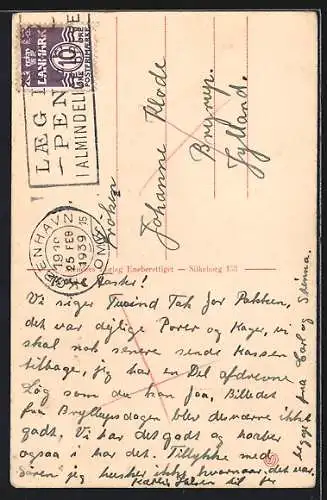 DANMARK
10
POSTFRIMÆRKE
LÆG
PEN
I ALMINDELI
KØBENHAVN
19-
25 FEB
1939
OMK.
Frøken
Johanne Klode
Bryrup.
Jylland.
Eneberettiget — Silkeborg 153
Kære Søster!
Vi siger Tusind Tak for Pakken,
det var dejlige Pærer og Kager, vi
skal nok senere sende Kassen
tilbage, jeg har en Del afdrevne
Løg som du kan faa, Billedet
fra Bryllupsdagen blev desværre ikke
godt, Vi har det godt og haaber
ogsaa i har det. Tillykke med
jeg husker ikke hvornaar det var.
Kærlig Hilsen til jer
begge fra Carl og